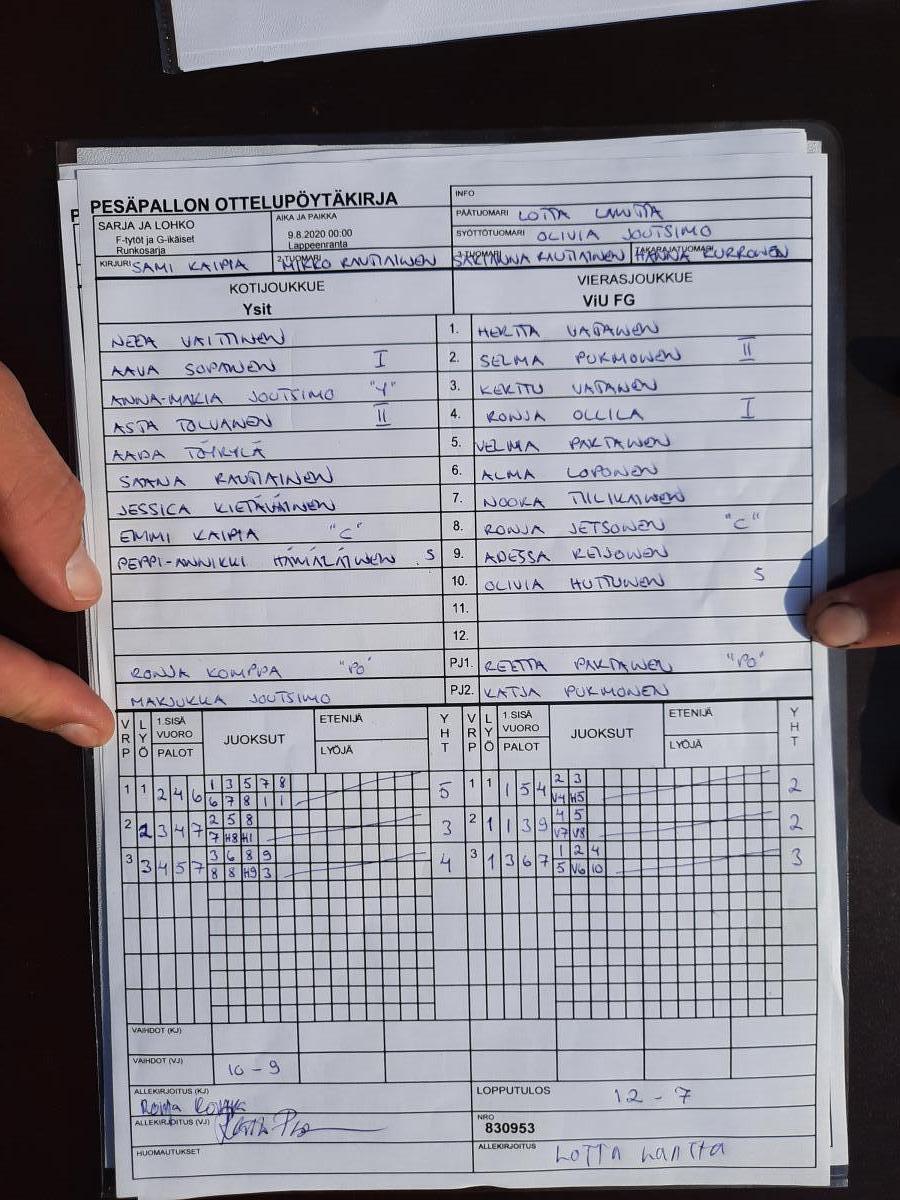 PESÄPALLON OTTELUPÖYTÄKIRJA
INFO
SARJA JA LOHKO
F-tytöt ja G-ikäiset
Runkosarja
AIKA JA PAIKKA
9.8.2020 00:00
Lappeenranta
PÄÄTUOMARI LOTTA LANTTA
SYÖTTÖTUOMARI OLIVIA JOUTSIMO
KIRJURI SAMI KAIPIA
2-TUOMARI MIKKO RAUTIAINEN
3-TUOMARI SARIANNA RAUTIAINEN
TAKARAJATUOMARI HANNA KURRONEN
KOTIJOUKKUE
Ysit
VIERASJOUKKUE
ViU FG
NEEA VAITTINEN 1. HERTTA VATANEN
AAVA SOPANEN I 2. SELMA PURMONEN II
ANNA-MARIA JOUTSIMO "Y" 3. KERTTU VATANEN
ASTA TOLVANEN II 4. RONJA OLLILA I
AADA TÖYRYLÄ 5. VELMA PARTANEN
SAANA RAUTIAINEN 6. ALMA LOPONEN
JESSICA KIETÄVÄINEN 7. NOORA TIILIKAINEN
EMMI KAIPIA "C" 8. RONJA JETSONEN "C"
PEPPI-ANNIKKI HÄMÄLÄINEN S 9. ADESSA REIJONEN
10. OLIVIA HUTTUNEN S
11.
12.
RONJA KOMPPA "PO" PJ1. REETTA PARTANEN "PO"
MARJUKKA JOUTSIMO PJ2. KATJA PURMONEN
VRP LYÖ 1.SISÄ VUORO PALOT JUOKSUT ETENIJÄ LYÖJÄ YHT VRP LYÖ 1.SISÄ VUORO PALOT JUOKSUT ETENIJÄ LYÖJÄ YHT
1 1 2 4 6 1 3 5 7 8 5 1 1 1 5 4 2 3 2
6 7 8 1 1 V4 H5
2 2 3 4 7 2 5 8 3 2 1 1 3 9 4 5 2
7 H8 H1 V7 V8
3 3 4 5 7 3 6 8 9 4 3 1 3 6 7 1 2 4 3
8 8 H9 3 5 V6 10
VAIHDOT (KJ)
VAIHDOT (VJ) 10 - 9
ALLEKIRJOITUS (KJ) Ronja Komppa
LOPPUTULOS 12 - 7
ALLEKIRJOITUS (VJ)
NRO
830953
HUOMAUTUKSET
ALLEKIRJOITUS LOTTA LANTTA